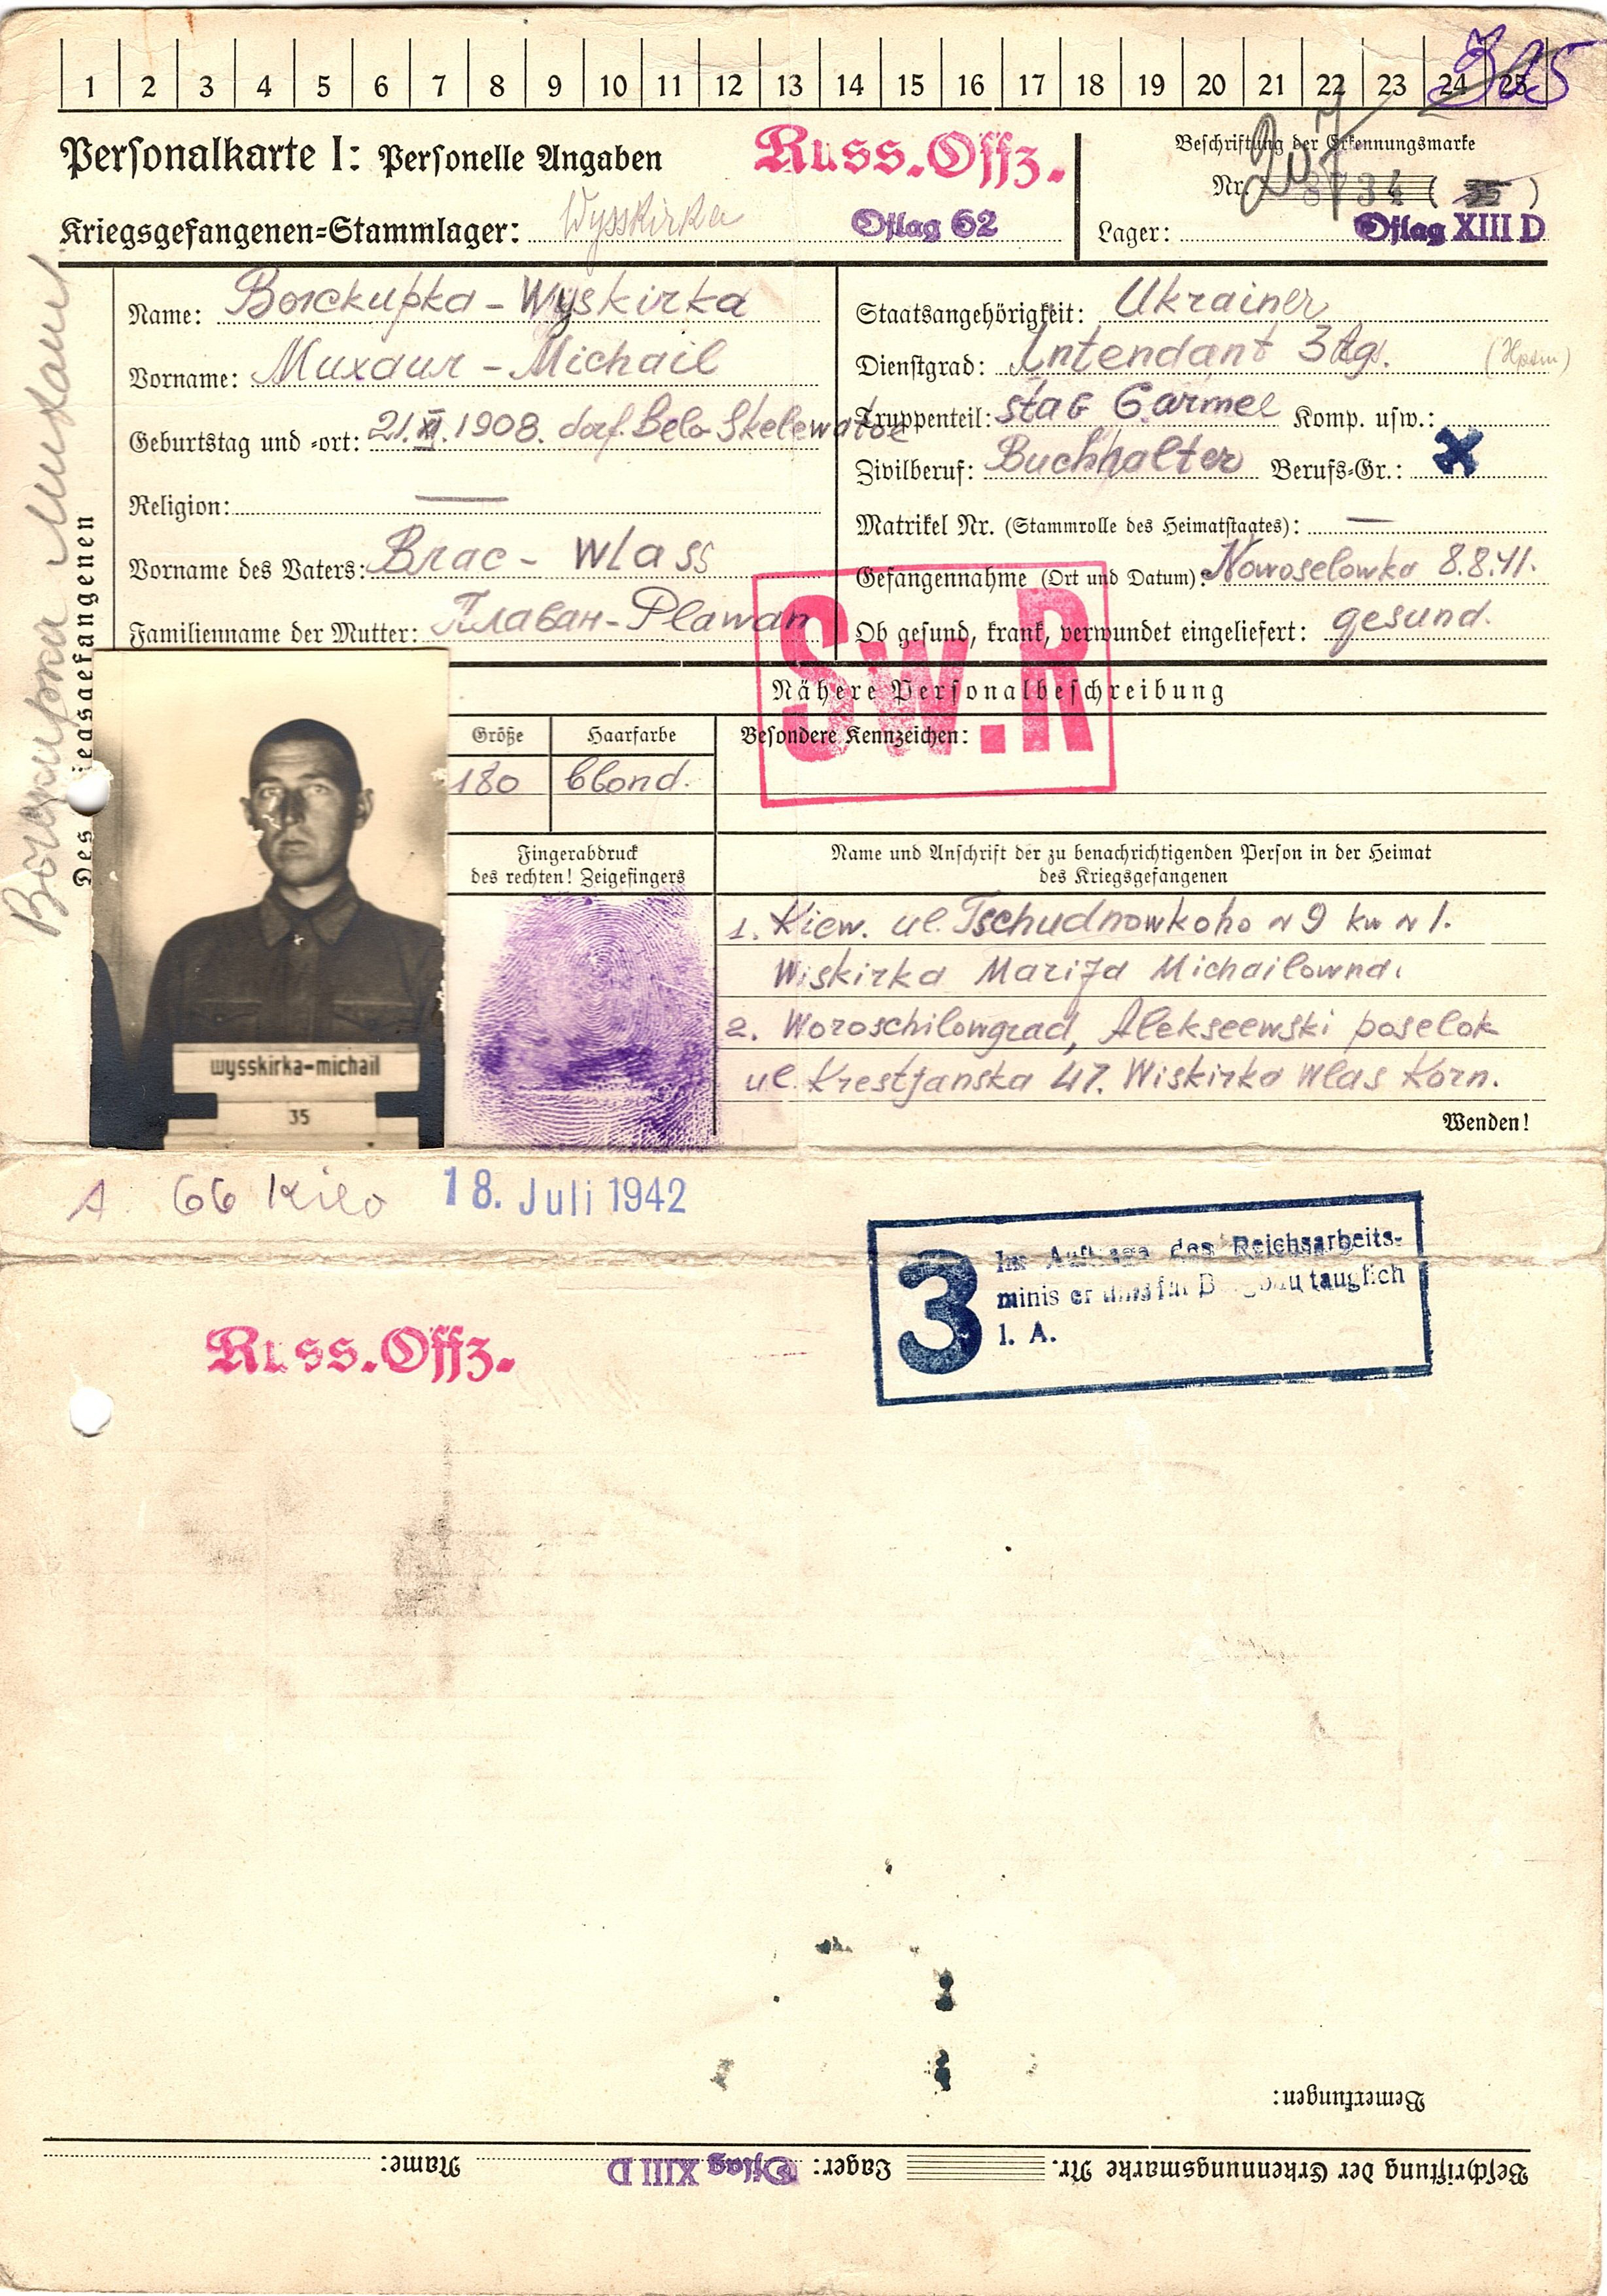 1 2 3 4 5 6 7 8 9 10 11 12 13 14 15 16 17 18 19 20 21 22 23 24 25
Personalkarte I: Personelle Angaben
Russ. Offz.
Beschriftung der Erkennungsmarke
Nr. 8734 ( 35 )
207
Kriegsgefangenen-Stammlager: Wysskirka Oflag 62
Lager: Oflag XIII D
Des Kriegsgefangenen
Name: Воскирка - Wyskirka
Vorname: Михаил - Michail
Geburtstag und -ort: 21.XI.1908. dorf. Belo Skelewatoe
Religion: —
Vorname des Vaters: Влас - Wlass
Familienname der Mutter: Плаван - Plawan
Staatsangehörigkeit: Ukrainer
Dienstgrad: Intendant 3 Rg.
Truppenteil: stab 6 armee Komp. usw.:
Zivilberuf: Buchhalter Berufs-Gr.: X
Matrikel Nr. (Stammrolle des Heimatstaates): —
Gefangennahme (Ort und Datum): Nowoselowka 8.8.41.
Ob gesund, krank, verwundet eingeliefert: gesund.
Sw.R
Nähere Personalbeschreibung
Größe Haarfarbe Besondere Kennzeichen:
180 blond.
Fingerabdruck
des rechten! Zeigefingers
Name und Anschrift der zu benachrichtigenden Person in der Heimat
des Kriegsgefangenen
1. Kiew. ul. Tschudnowkoho N 9 kw N 1.
Wiskirka Marija Michailowna.
2. Woroschilowgrad, Alekseewski poselok
ul. Krestjanska 47. Wiskirka Wlas Korn.
wysskirka-michail
35
Wenden!
A. 66 Kilo 18. Juli 1942
3 Im Auftrage des Reichsarbeits-
ministeriums für Bergbau tauglich
I. A.
Russ. Offz.
Bemerkungen:
Beschriftung der Erkennungsmarke Nr. Lager: Oflag XIII D Name: